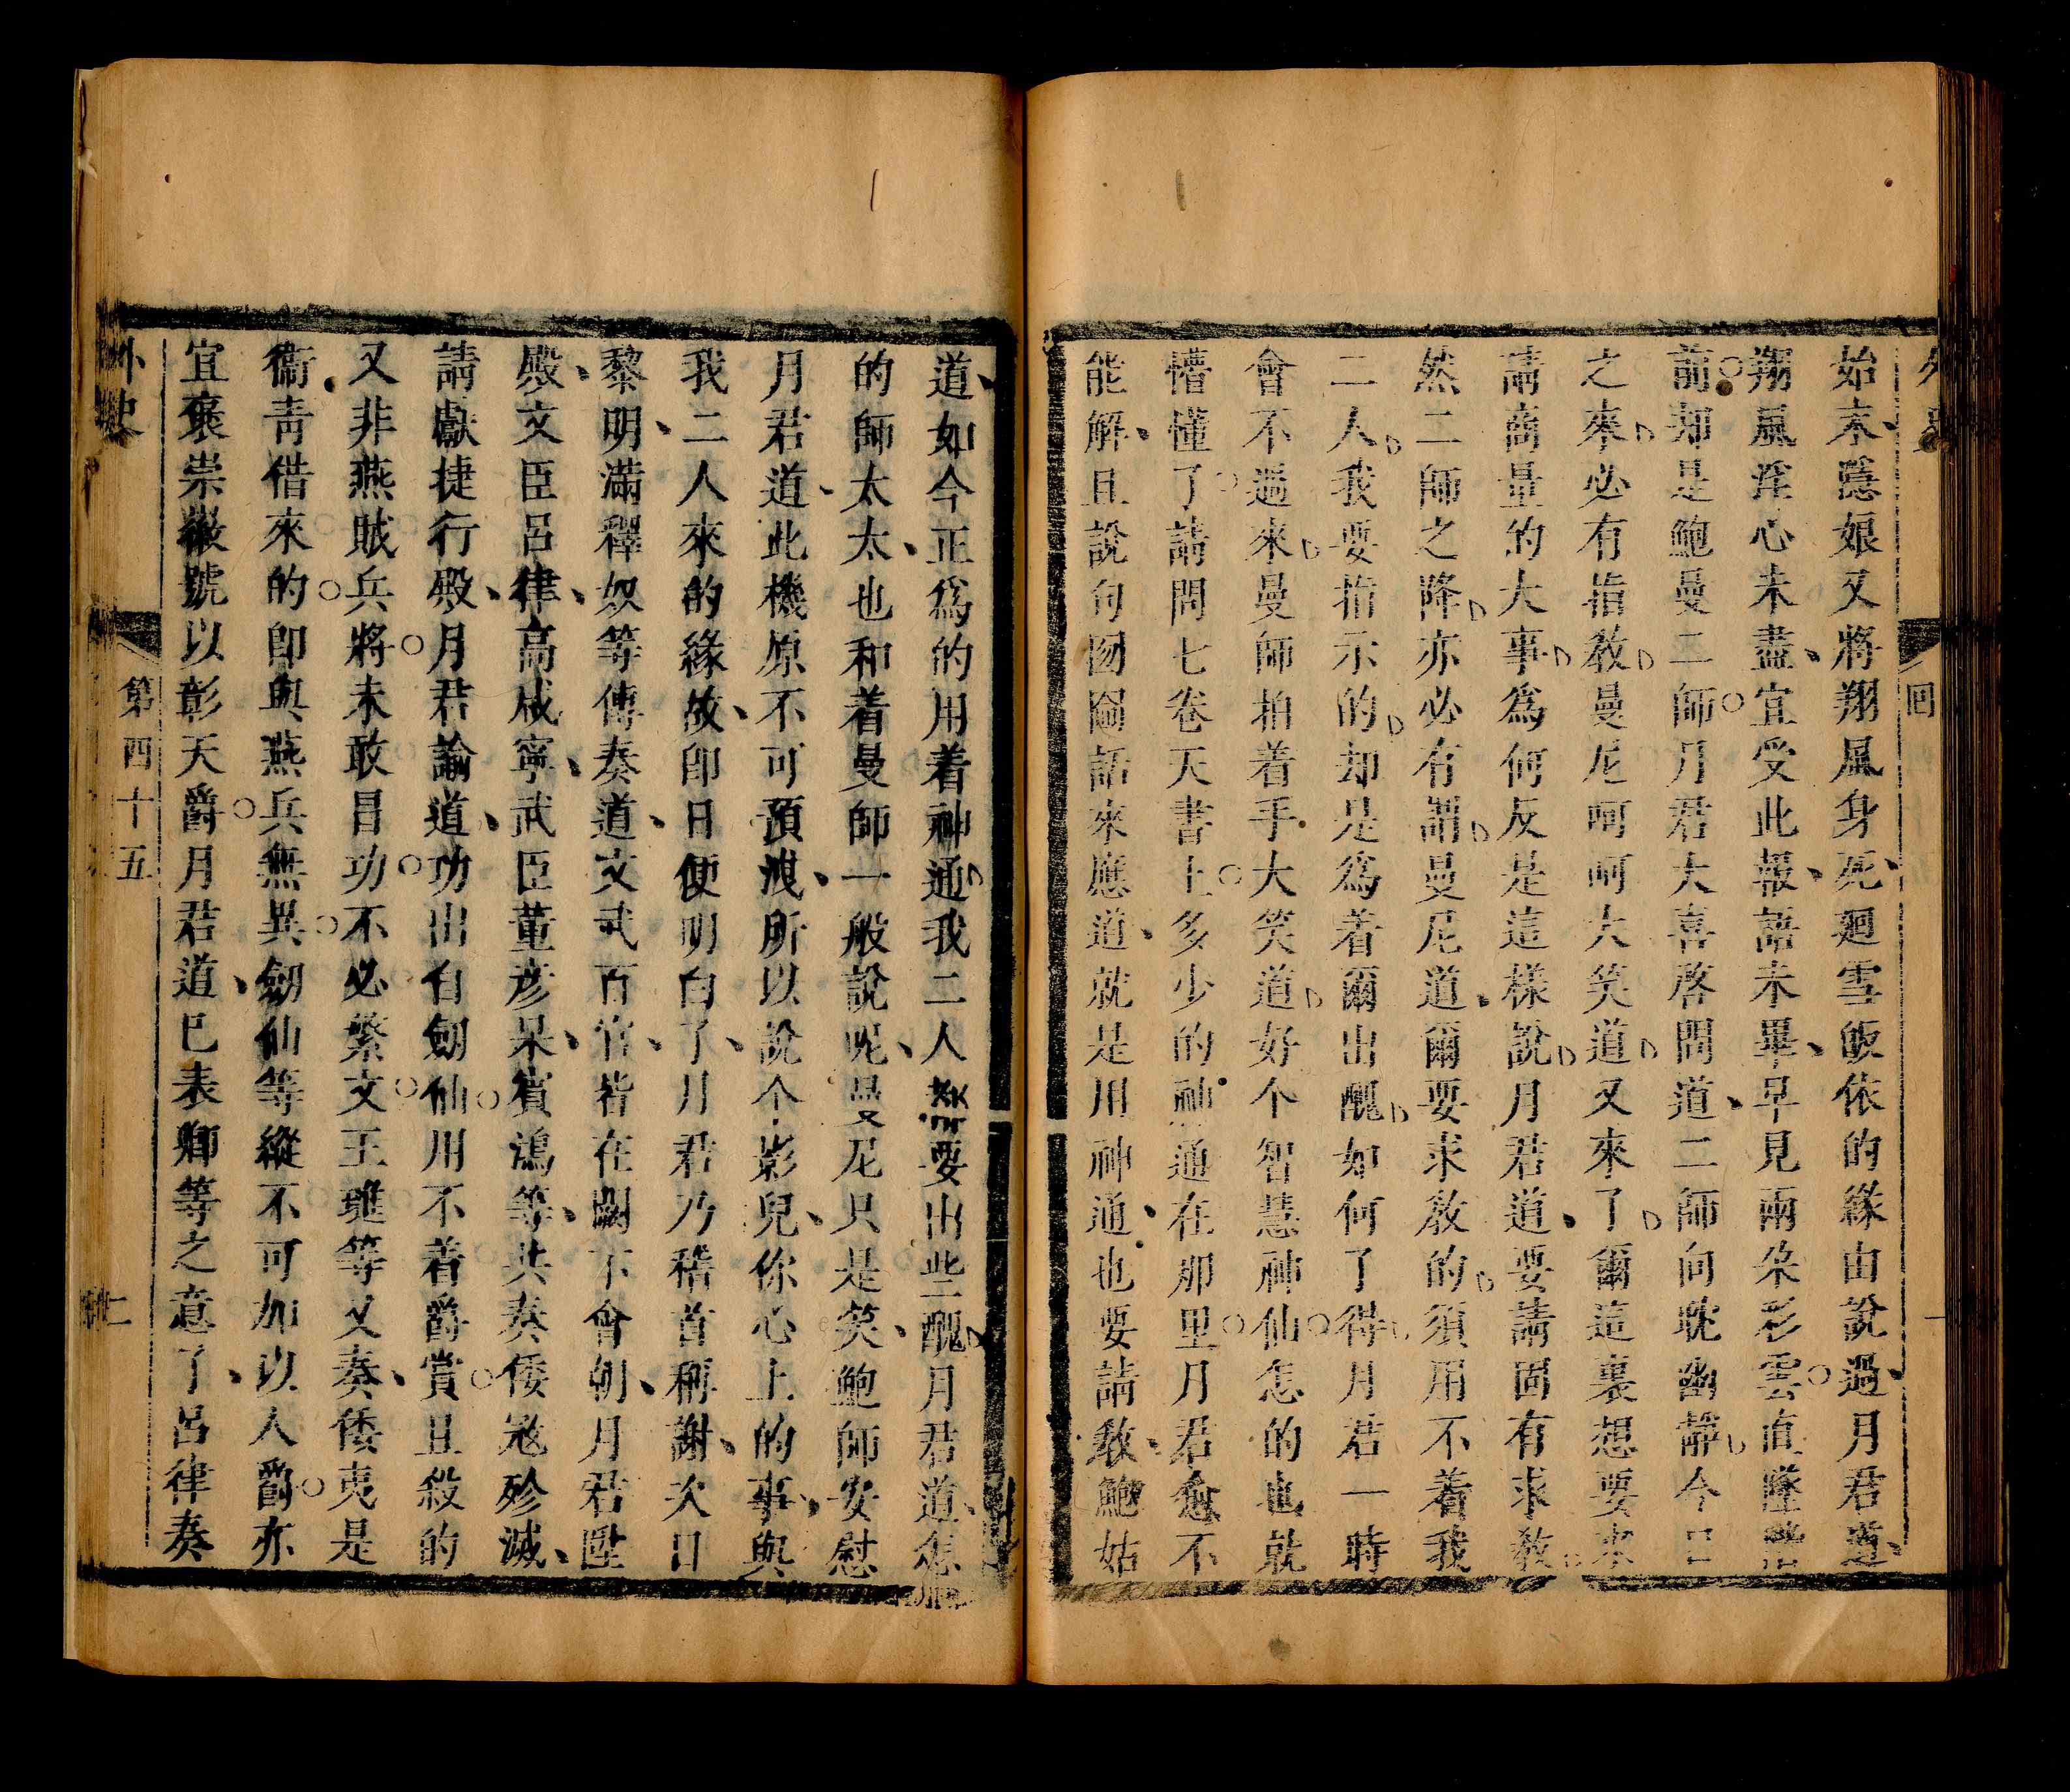 外史
回
一
始末隱娘又將翔風身死廻雪皈依的緣由說過月君道
翔風淫心未盡宜受此報語未畢早見兩朵彩雲直墜堦
前却是鮑曼二師月君大喜啓問道二師向耽幽靜今日
之來必有指教曼尼呵呵大笑道又來了爾這裏想要來
請商量的大事爲何反是這樣說月君道要請固有求教
然二師之降亦必有謂曼尼道爾要求教的須用不着我
二人我要指示的却是爲着爾出醜如何了得月君一時
會不過來曼師拍着手大笑道好个智慧神仙怎的也就
懵懂了請問七卷天書上多少的神通在那里月君愈不
能解且說句囫圇話來應道就是用神通也要請教鮑姑
道如今正爲的用着神通我二人要出些醜月君道怎
的師太太也和着曼師一般說呢曼尼只是笑鮑師安慰
月君道此機原不可預洩所以說个影兒你心上的事與
我二人來的緣故即日便明白了月君乃稽首稱謝次日
黎明滿釋奴等傳奏道文武百官皆在闕下會朝月君陞
殿文臣呂律高咸寧武臣董彥杲賓鴻等共奏倭冦殄滅
請獻捷行殿月君諭道功出自劒仙用不着爵賞且殺的
又非燕賊兵將未敢冒功不必繁文王璡等又奏倭夷是
衞青借來的即與燕兵無異劒仙等縱不可加以人爵亦
宜褒崇徽號以彰天爵月君道已表卿等之意了呂律奏
外史
第四十五
二